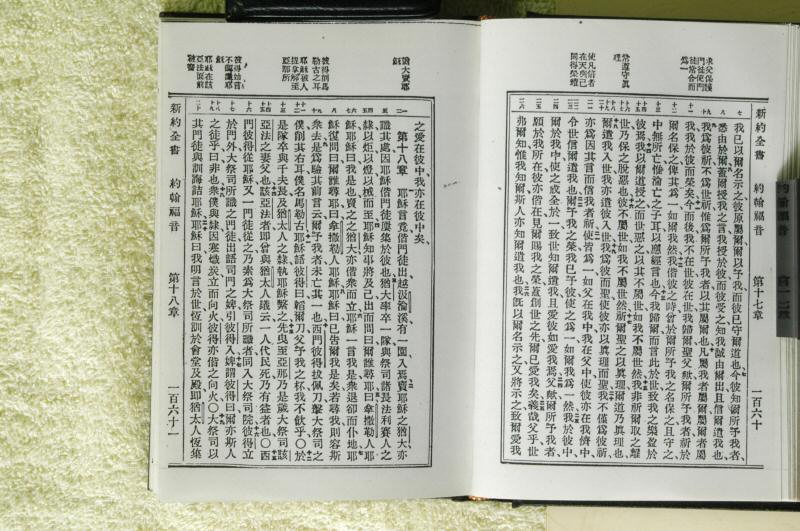 新約全書 約翰福音 第十七章 一百六十
求父保護
門徒使門
徒常合而
爲一
常遵守眞
理
使凡信者
在天與己
同得榮耀
我已以爾名示之彼原屬爾爾以予我而彼已守爾道也今彼知爾所予我者
悉由於爾蓋爾授我之言我授於彼而彼受之知我誠由爾出且信爾遣我也
我爲彼祈不爲世祈惟爲爾所予我者以其屬爾也凡屬我者屬爾屬爾者屬
我我於彼而榮矣今而後我不在世彼在世我歸爾聖父歟爾所予我者祈於
爾名保之俾其爲一如我儕然我偕彼之時曾於爾所予我之名保之且守之
中無所亡惟淪亡之子耳以應經言也今我歸爾而言此於世致我之樂盈於
彼焉我以爾道授之而世惡之以其不屬世如我不屬世然我非祈爾取之離
世乃保之脫惡也彼不屬世如我不屬世然祈爾聖之以眞理爾道乃眞理也
爾遣我入世我亦遣彼入世我爲彼而聖使彼亦以眞理而聖我不僅爲彼祈
亦爲因其言而信我者祈使皆爲一如父在我中我在父中使彼亦在我儕中
令世信爾遣我也爾予我之榮我已予彼使之爲一如我儕爲一然我於彼中
爾於我中使之成全於一致世知爾遣我且愛彼如愛我焉父歟爾所予我者
願於我所在彼亦偕在見爾賜我之榮蓋創世之先爾已愛我矣義哉父乎世
弗爾知惟我知爾斯人亦知爾遣我也我旣以爾名示之又將示之致爾愛我
猶大賣耶
穌
彼得削馬
勒古之耳
耶穌被人
捉拿解至
亞那所
彼得始言
不識耶
穌
耶穌在該
亞法面前
被審
之愛在彼中我亦在彼中矣
第十八章 耶穌言竟偕門徒出越汲淪溪有一園入焉賣耶穌之猶大亦
識其處因耶穌偕門徒屢集於彼也猶大率卒一隊與祭司諸長法利賽人之
隸以炬以燈以械而至耶穌知事將及己出而問曰爾誰尋曰拿撒勒人耶
穌耶穌曰我是也賣之之猶大亦偕衆而立耶穌一言我是衆退卻而仆地耶
穌復問曰爾誰尋曰拿撒勒人耶穌耶穌曰已告爾我是矣若尋我則容斯
衆去是爲驗其前言云爾予我者未亡其一也西門彼得拔佩刀擊大祭司之
僕削其右耳僕名馬勒古耶穌語彼得曰韜爾刀父予我之杯我不飲乎〇於
是隊卒與千夫長及猶太人之隸執耶穌繫之先曳至亞那乃是歲大祭司該
亞法之妻父也該亞法者卽曾與猶太人議云一人代民死乃有益者也〇西
門彼得從耶穌又一門徒從之乃素爲大祭司所識者同入大祭司院彼得立
於門外大祭司所識之門徒出語司門之婢引彼得入婢謂彼得曰爾亦斯人
之徒乎曰非也衆僕與隸因寒熾炭立而向火彼得亦偕之向火〇大祭司以
其門徒與訓誨詰耶穌耶穌曰我明言於世恆訓於會堂及殿卽猶太人恆集
新約全書 約翰福音 第十八章 一百六十一